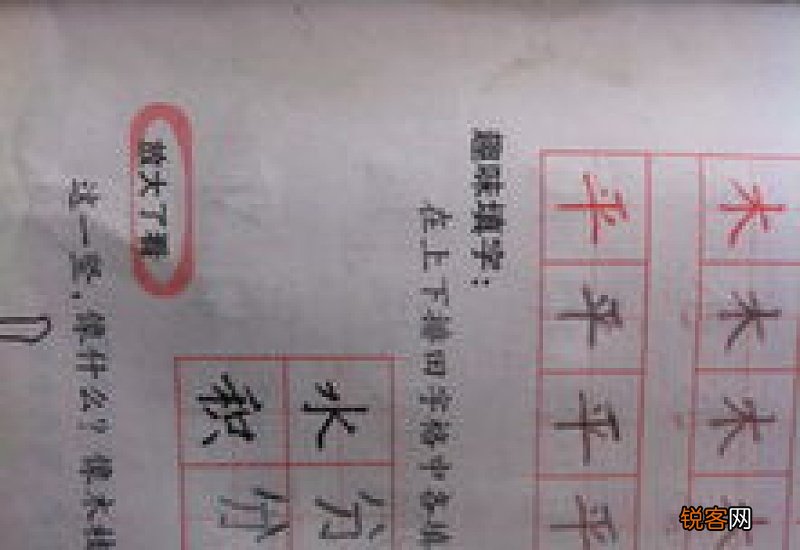 木 木 木 木
平 平 平 平
趣味填字：
在上下排田字格中各填
水 分
积 份
放大了看
这一竖，像什么？像木
锐客网